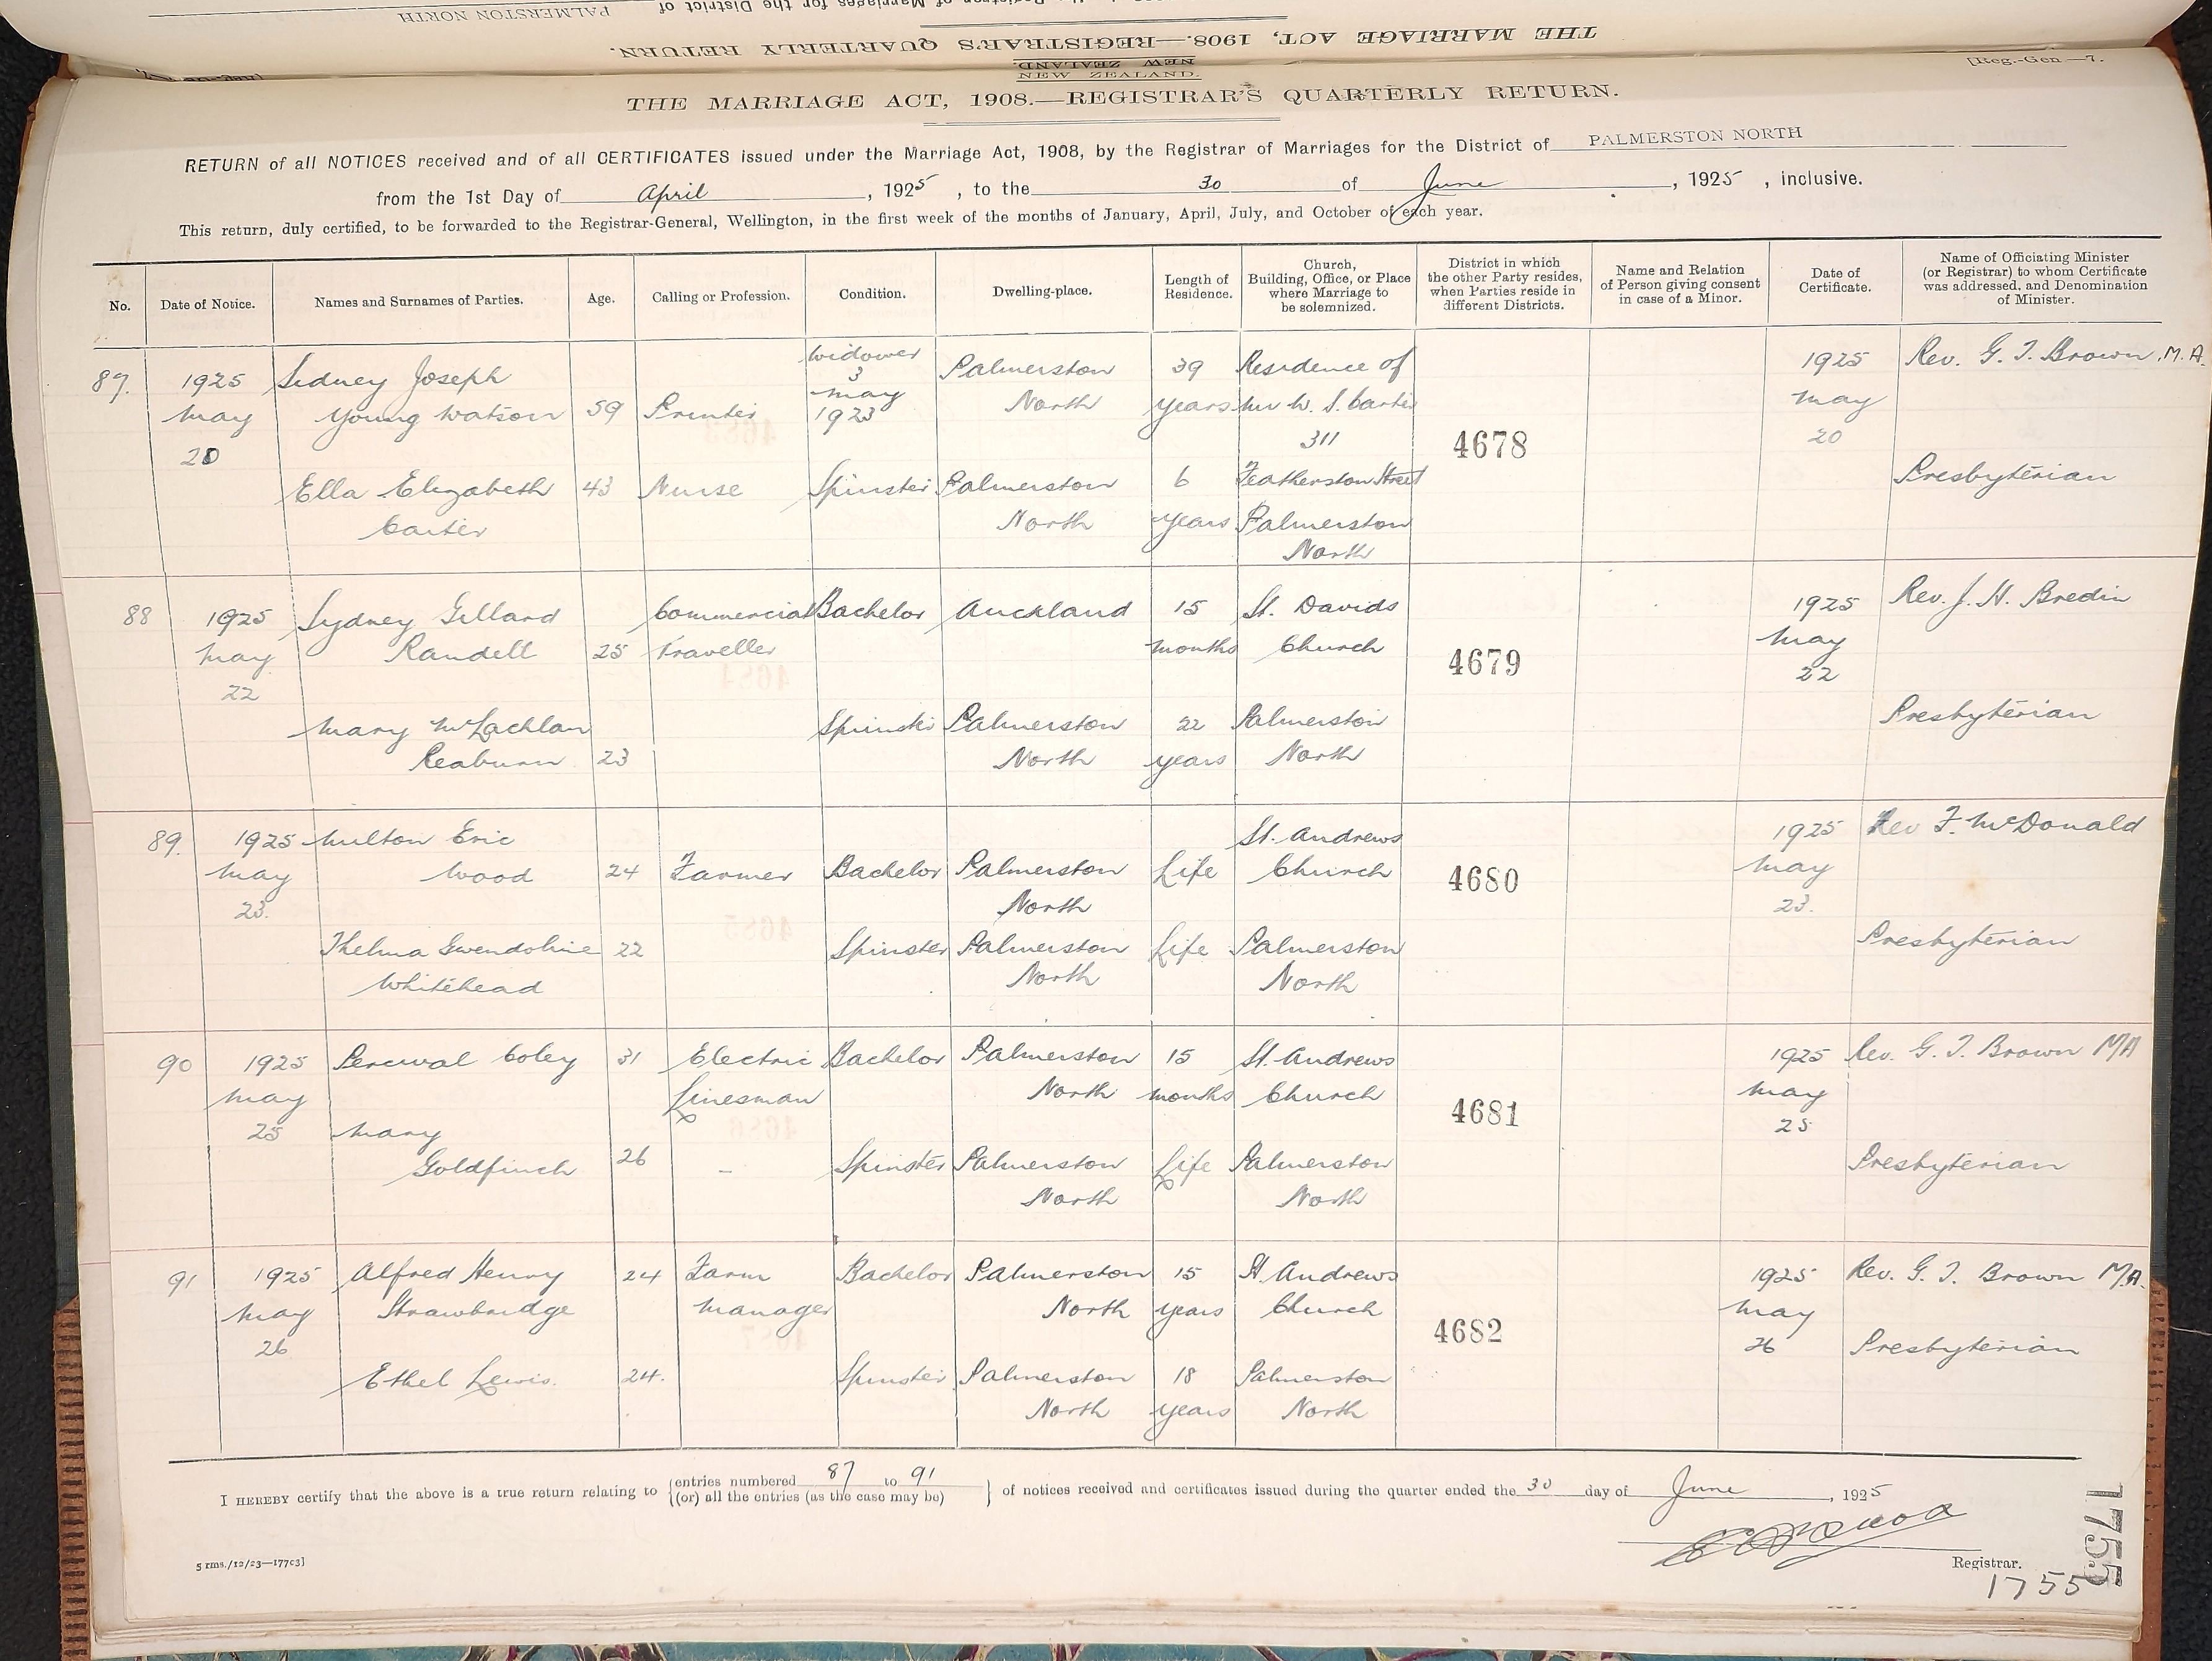 PALMERSTON NORTH
THE MARRIAGE ACT, 1908.—REGISTRAR'S QUARTERLY RETURN.
NEW ZEALAND.
NEW ZEALAND.
[Reg.-Gen.—7.
THE MARRIAGE ACT, 1908.—REGISTRAR'S QUARTERLY RETURN.
RETURN of all NOTICES received and of all CERTIFICATES issued under the Marriage Act, 1908, by the Registrar of Marriages for the District of PALMERSTON NORTH
from the 1st Day of April, 1925, to the 30 of June, 1925, inclusive.
This return, duly certified, to be forwarded to the Registrar-General, Wellington, in the first week of the months of January, April, July, and October of each year.
No. Date of Notice. Names and Surnames of Parties. Age. Calling or Profession. Condition. Dwelling-place. Length of Residence. Church, Building, Office, or Place where Marriage to be solemnized. District in which the other Party resides, when Parties reside in different Districts. Name and Relation of Person giving consent in case of a Minor. Date of Certificate. Name of Officiating Minister (or Registrar) to whom Certificate was addressed, and Denomination of Minister.
87. 1925 May 20
Sidney Joseph Young Watson 59 Printer Widower 3 May 1923 Palmerston North 39 years
Residence of Mr W. S. Carter 311 Featherston Street Palmerston North
4678
1925 May 20
Rev. G. T. Brown, M.A.
Presbyterian
Ella Elizabeth Carter 43 Nurse Spinster Palmerston North 6 years
88 1925 May 22
Sydney Gillard Randell 25 Commercial Traveller Bachelor Auckland 15 months
St. Davids Church Palmerston North
4679
1925 May 22
Rev. J. H. Bredin
Presbyterian
Mary McLachlan Reaburn 23 Spinster Palmerston North 22 years
89. 1925 May 23.
Milton Eric Wood 24 Farmer Bachelor Palmerston North Life
St. Andrews Church Palmerston North
4680
1925 May 23.
Rev F. McDonald
Presbyterian
Thelma Gwendoline Whitehead 22 Spinster Palmerston North Life
90 1925 May 25
Percival Coley 31 Electric Linesman Bachelor Palmerston North 15 months
St. Andrews Church Palmerston North
4681
1925 May 25
Rev. G. T. Brown MA
Presbyterian
Mary Goldfinch 26 - Spinster Palmerston North Life
91 1925 May 26
Alfred Henry Strawbridge 24 Farm Manager Bachelor Palmerston North 15 years
St Andrews Church Palmerston North
4682
1925 May 26
Rev. G. T. Brown M.A.
Presbyterian
Ethel Lewis. 24. Spinster Palmerston North 18 years
I HEREBY certify that the above is a true return relating to {entries numbered 87 to 91 {(or) all the entries (as the case may be)} of notices received and certificates issued during the quarter ended the 30 day of June, 1925
Registrar.
5 rms./12/23—17703]
1755
1755